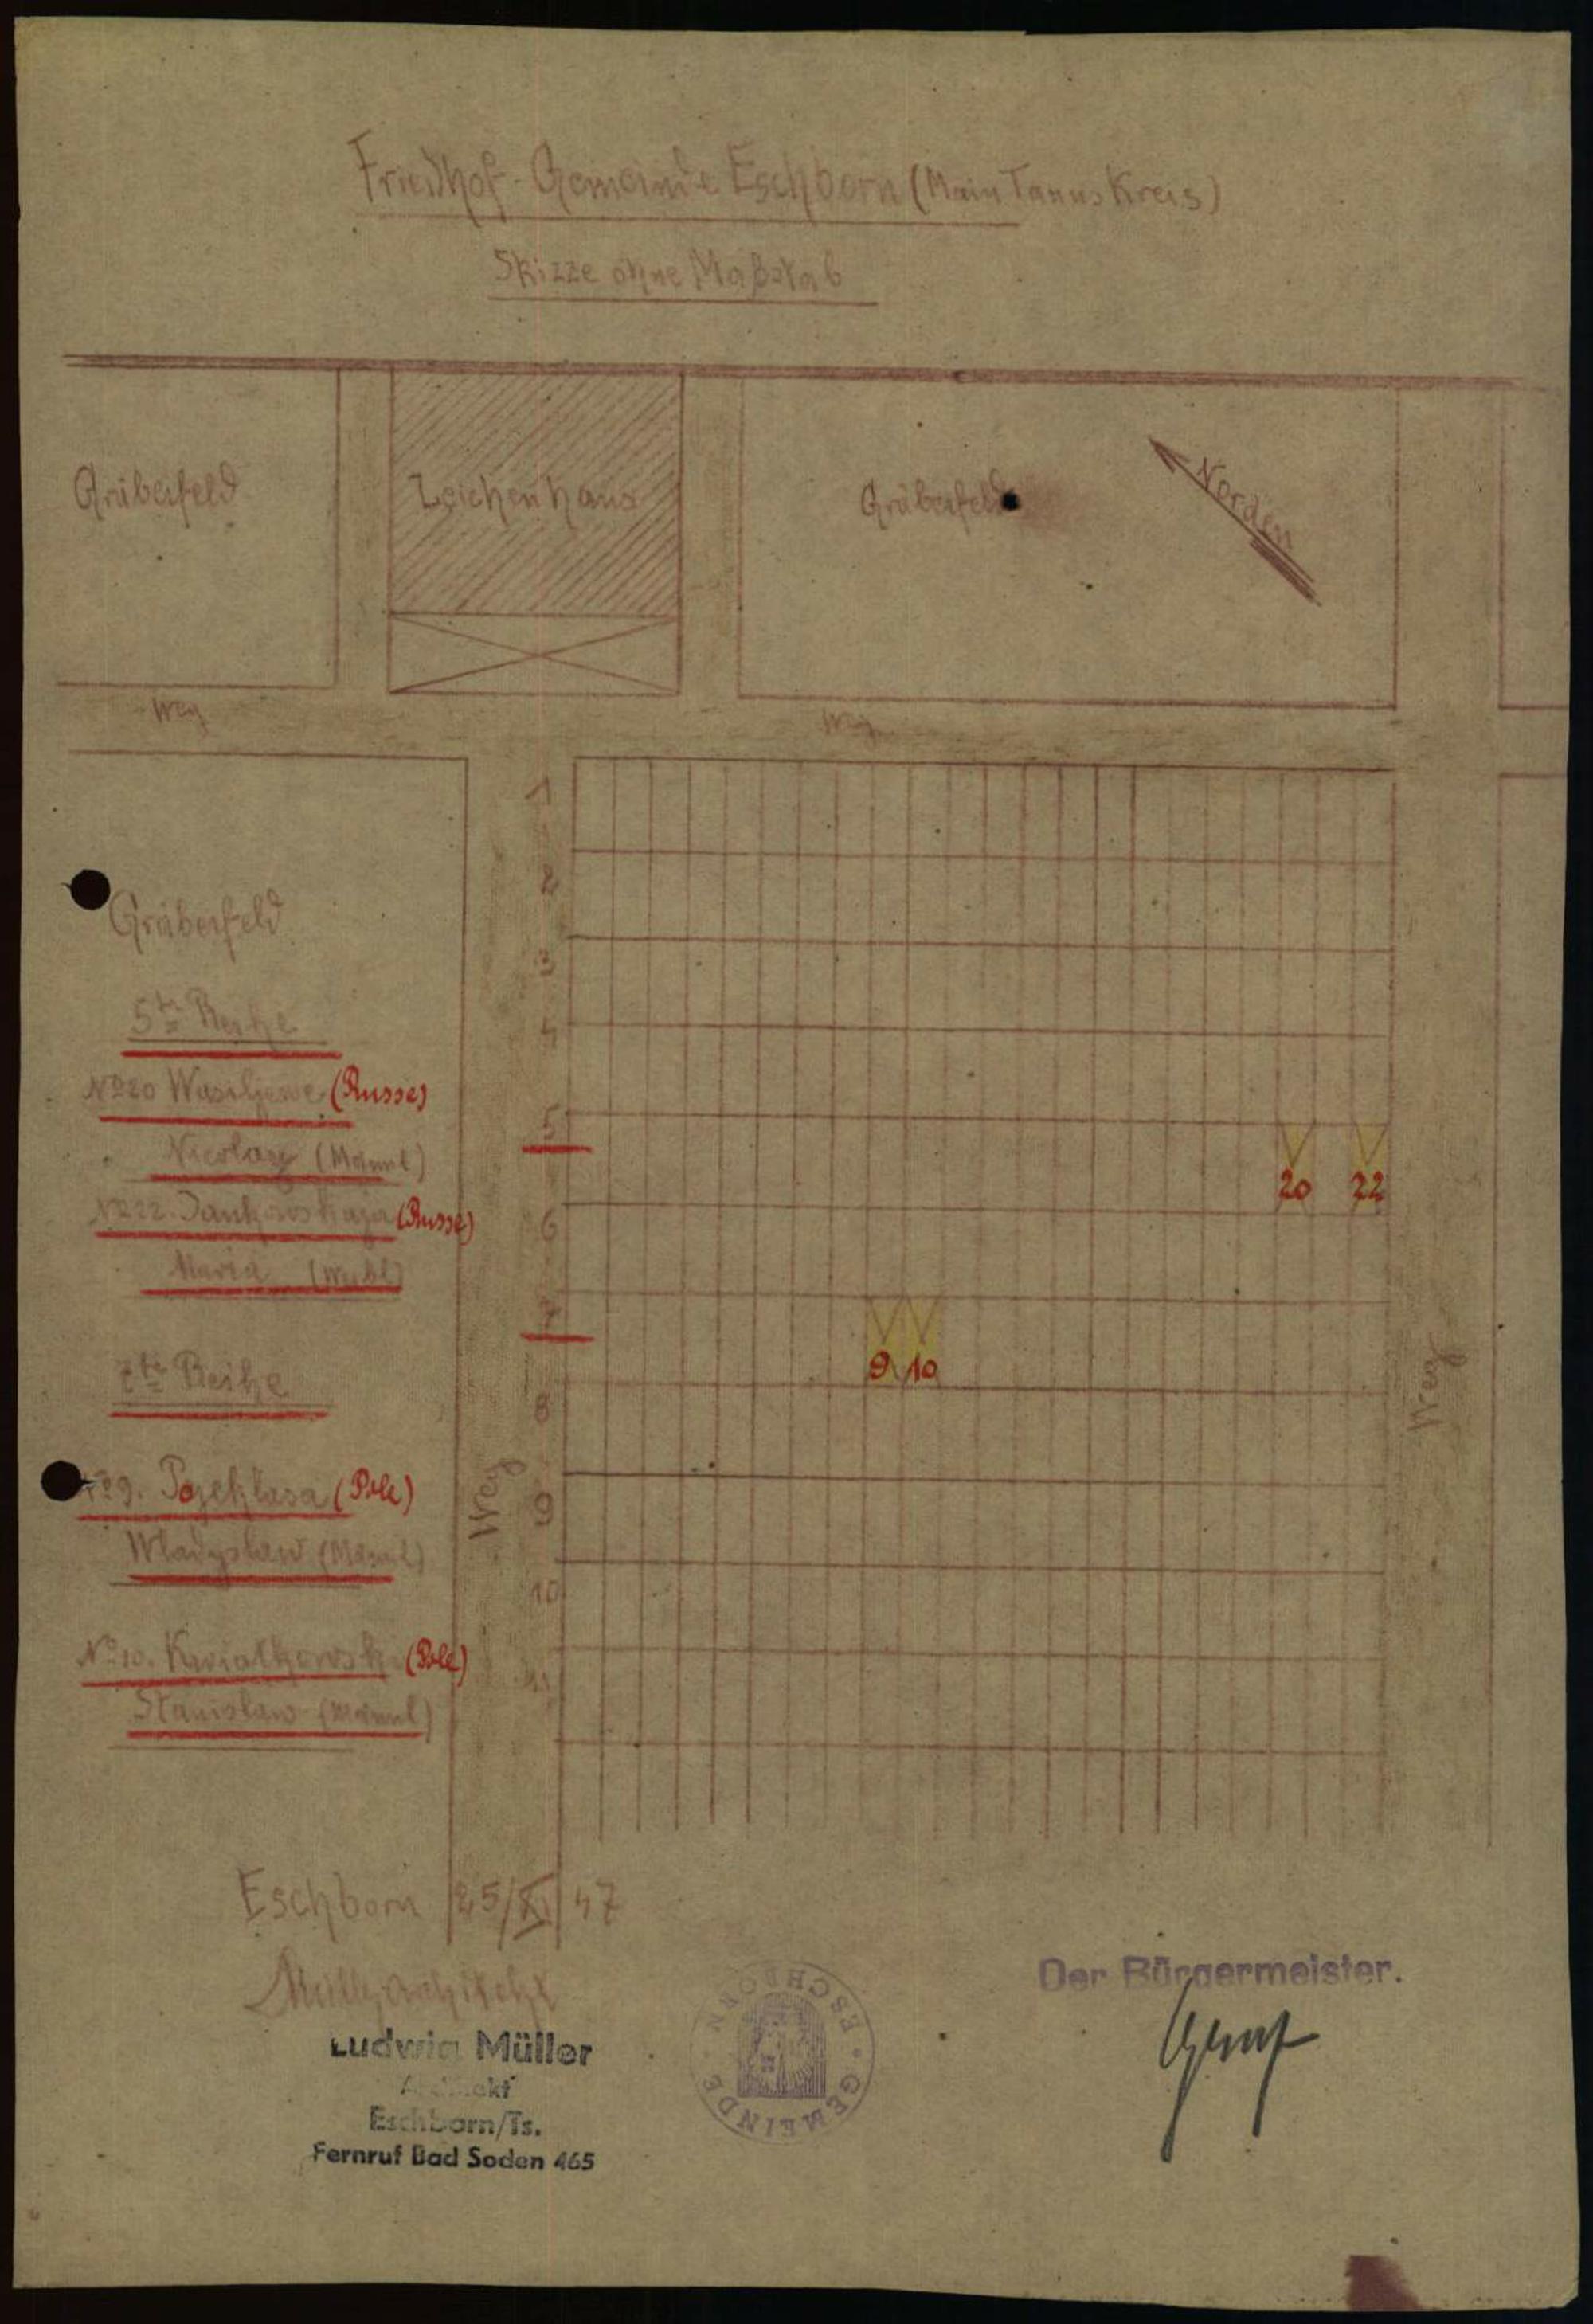 Friedhof-Gemeinde Eschborn (Main Taunus Kreis)
Skizze ohne Maßstab
Gräberfeld
Leichenhaus
Gräberfeld
Norden
Weg
Weg
1
2
3
4
5
6
7
8
9
10
11
20 22
9 10
Weg
Weg
Gräberfeld
5te Reihe
No 20 Wasiljewe (Russe)
Nicolay (Männl)
No 22. Jankowskaja (Russe)
Maria (Weibl)
7te Reihe
No 9. (Pole)
Wladyslaw (Männl)
No 10. Kwiatkowski (Pole)
Stanislaw (Männl)
Eschborn 25/XI 47
Ludwig Müller
Architekt
Eschborn/Ts.
Fernruf Bad Soden 465
GEMEINDE ESCHBORN
Der Bürgermeister.